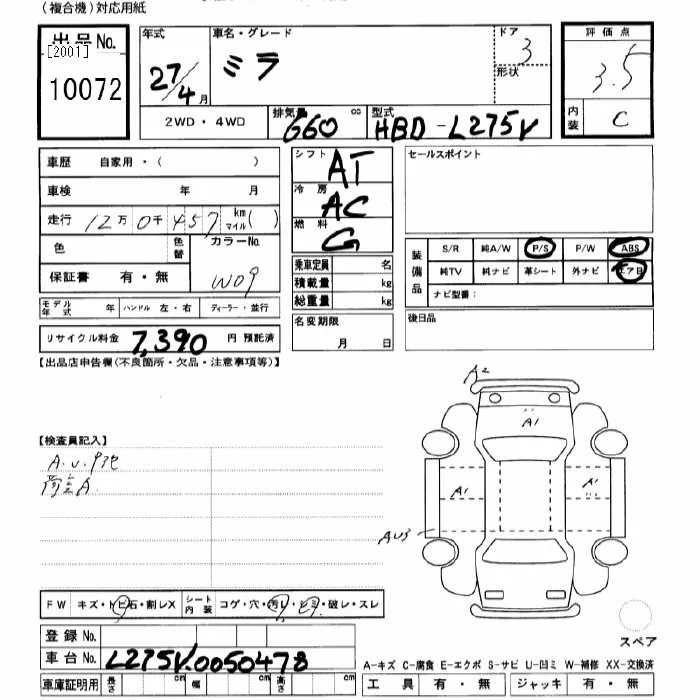 (複合機)対応用紙
出品No. [2001] 10072
年式 27/4月 車名・グレード ミラ ドア 3 形状
評価点 3.5
内装 C
2WD・4WD 排気量 660 cc 型式 HBD-L275V
車歴 自家用・( )
車検 年 月
走行 12万0千457 km マイル( )
色 色替 カラーNo. W09
保証書 有・無
モデル年式 年 ハンドル 左・右 ディーラー・並行
リサイクル料金 7,390 円 預託済
シフト AT
冷房 AC
燃料 G
乗車定員 名
積載量 kg
総重量 kg
名変期限 月 日
セールスポイント
装備品 S/R 純A/W P/S P/W ABS
純TV 純ナビ 革シート 外ナビ エアB
ナビ型番:
後日品
【出品店申告欄(不良箇所・欠品・注意事項等)】
A2
A1
A1
A1
AU3
【検査員記入】
A.U.P他
荷室A
FW キズ・トビ石・割レX シート内装 コゲ・穴・汚レ・シミ・破レ・スレ
登録No.
車台No. L275V.0050478
車庫証明用 長さ cm 幅 cm 高さ cm
スペア
A-キズ C-腐食 E-エクボ S-サビ U-凹ミ W-補修 XX-交換済
工具 有・無 ジャッキ 有・無